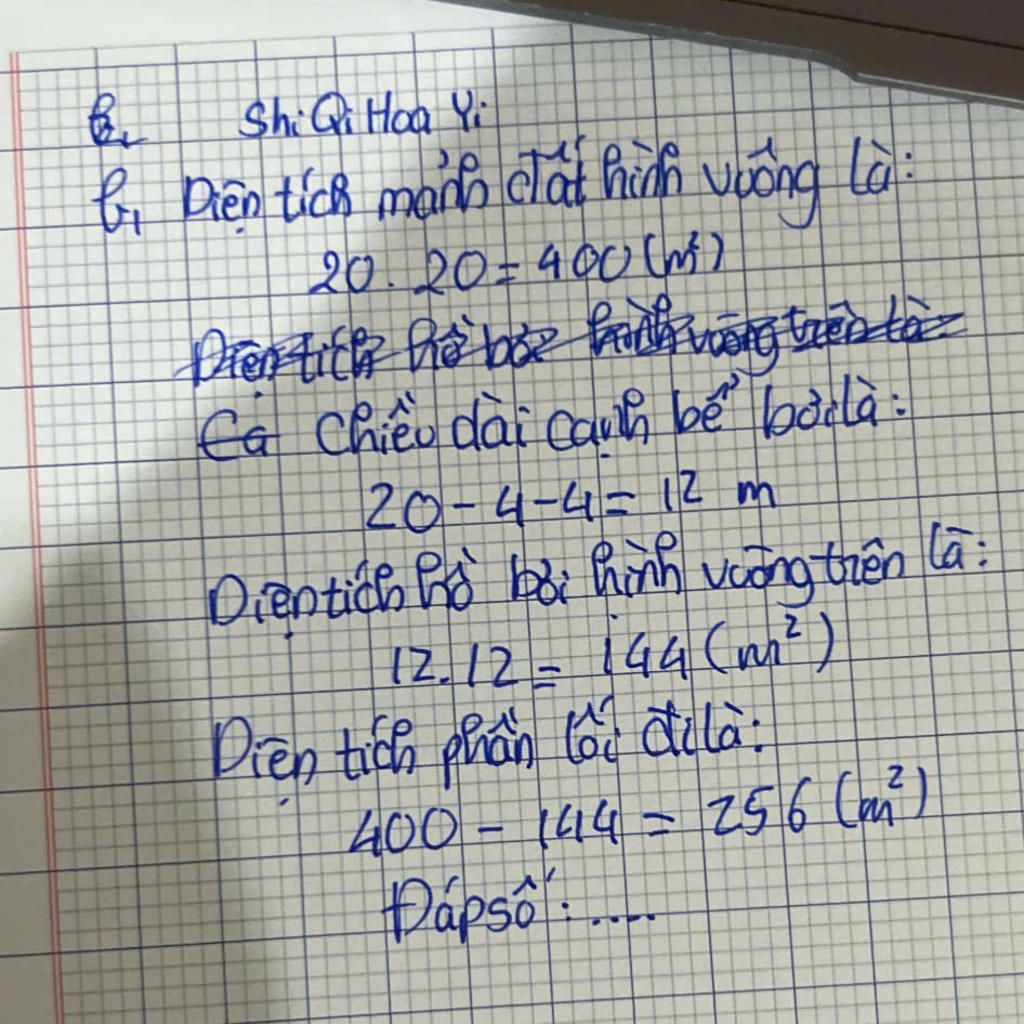 Shi Qi Hoa Yi
b, Diện tích mảnh đất hình vuông là:
20 . 20 = 400 (m²)
Diện tích hồ bơi hình vuông trên là
Cạ Chiều dài cạnh bể bơi là:
20 - 4 - 4 = 12 m
Diện tích hồ bơi hình vuông trên là:
12 . 12 = 144 (m²)
Diện tích phần lối đi là:
400 - 144 = 256 (m²)
Đáp số : .....